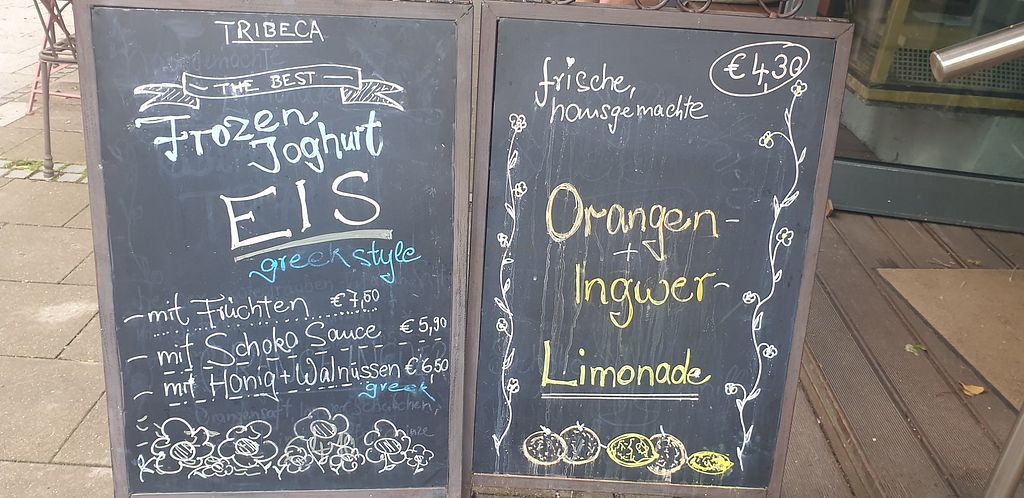 TRIBECA
THE BEST
Frozen
Joghurt
EIS
greek style
- mit Früchten €7,50
- mit Schoko Sauce €5,90
- mit Honig + Walnüssen €6,50
greek
€4,30
frische,
hausgemachte
Orangen-
+
Ingwer-
Limonade